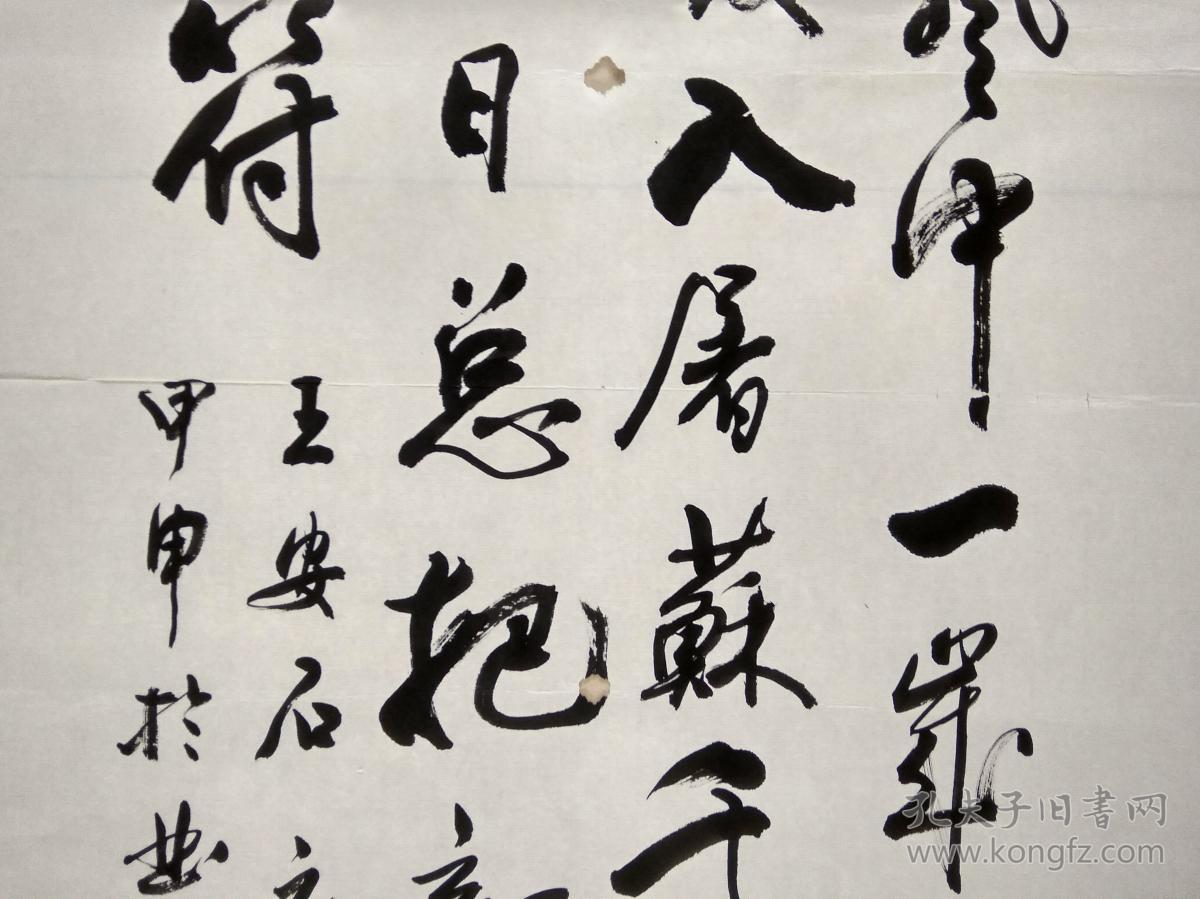 中一歲
入屠蘇千
日总把
符
王安石
甲申於
孔夫子旧书网
www.kongfz.com